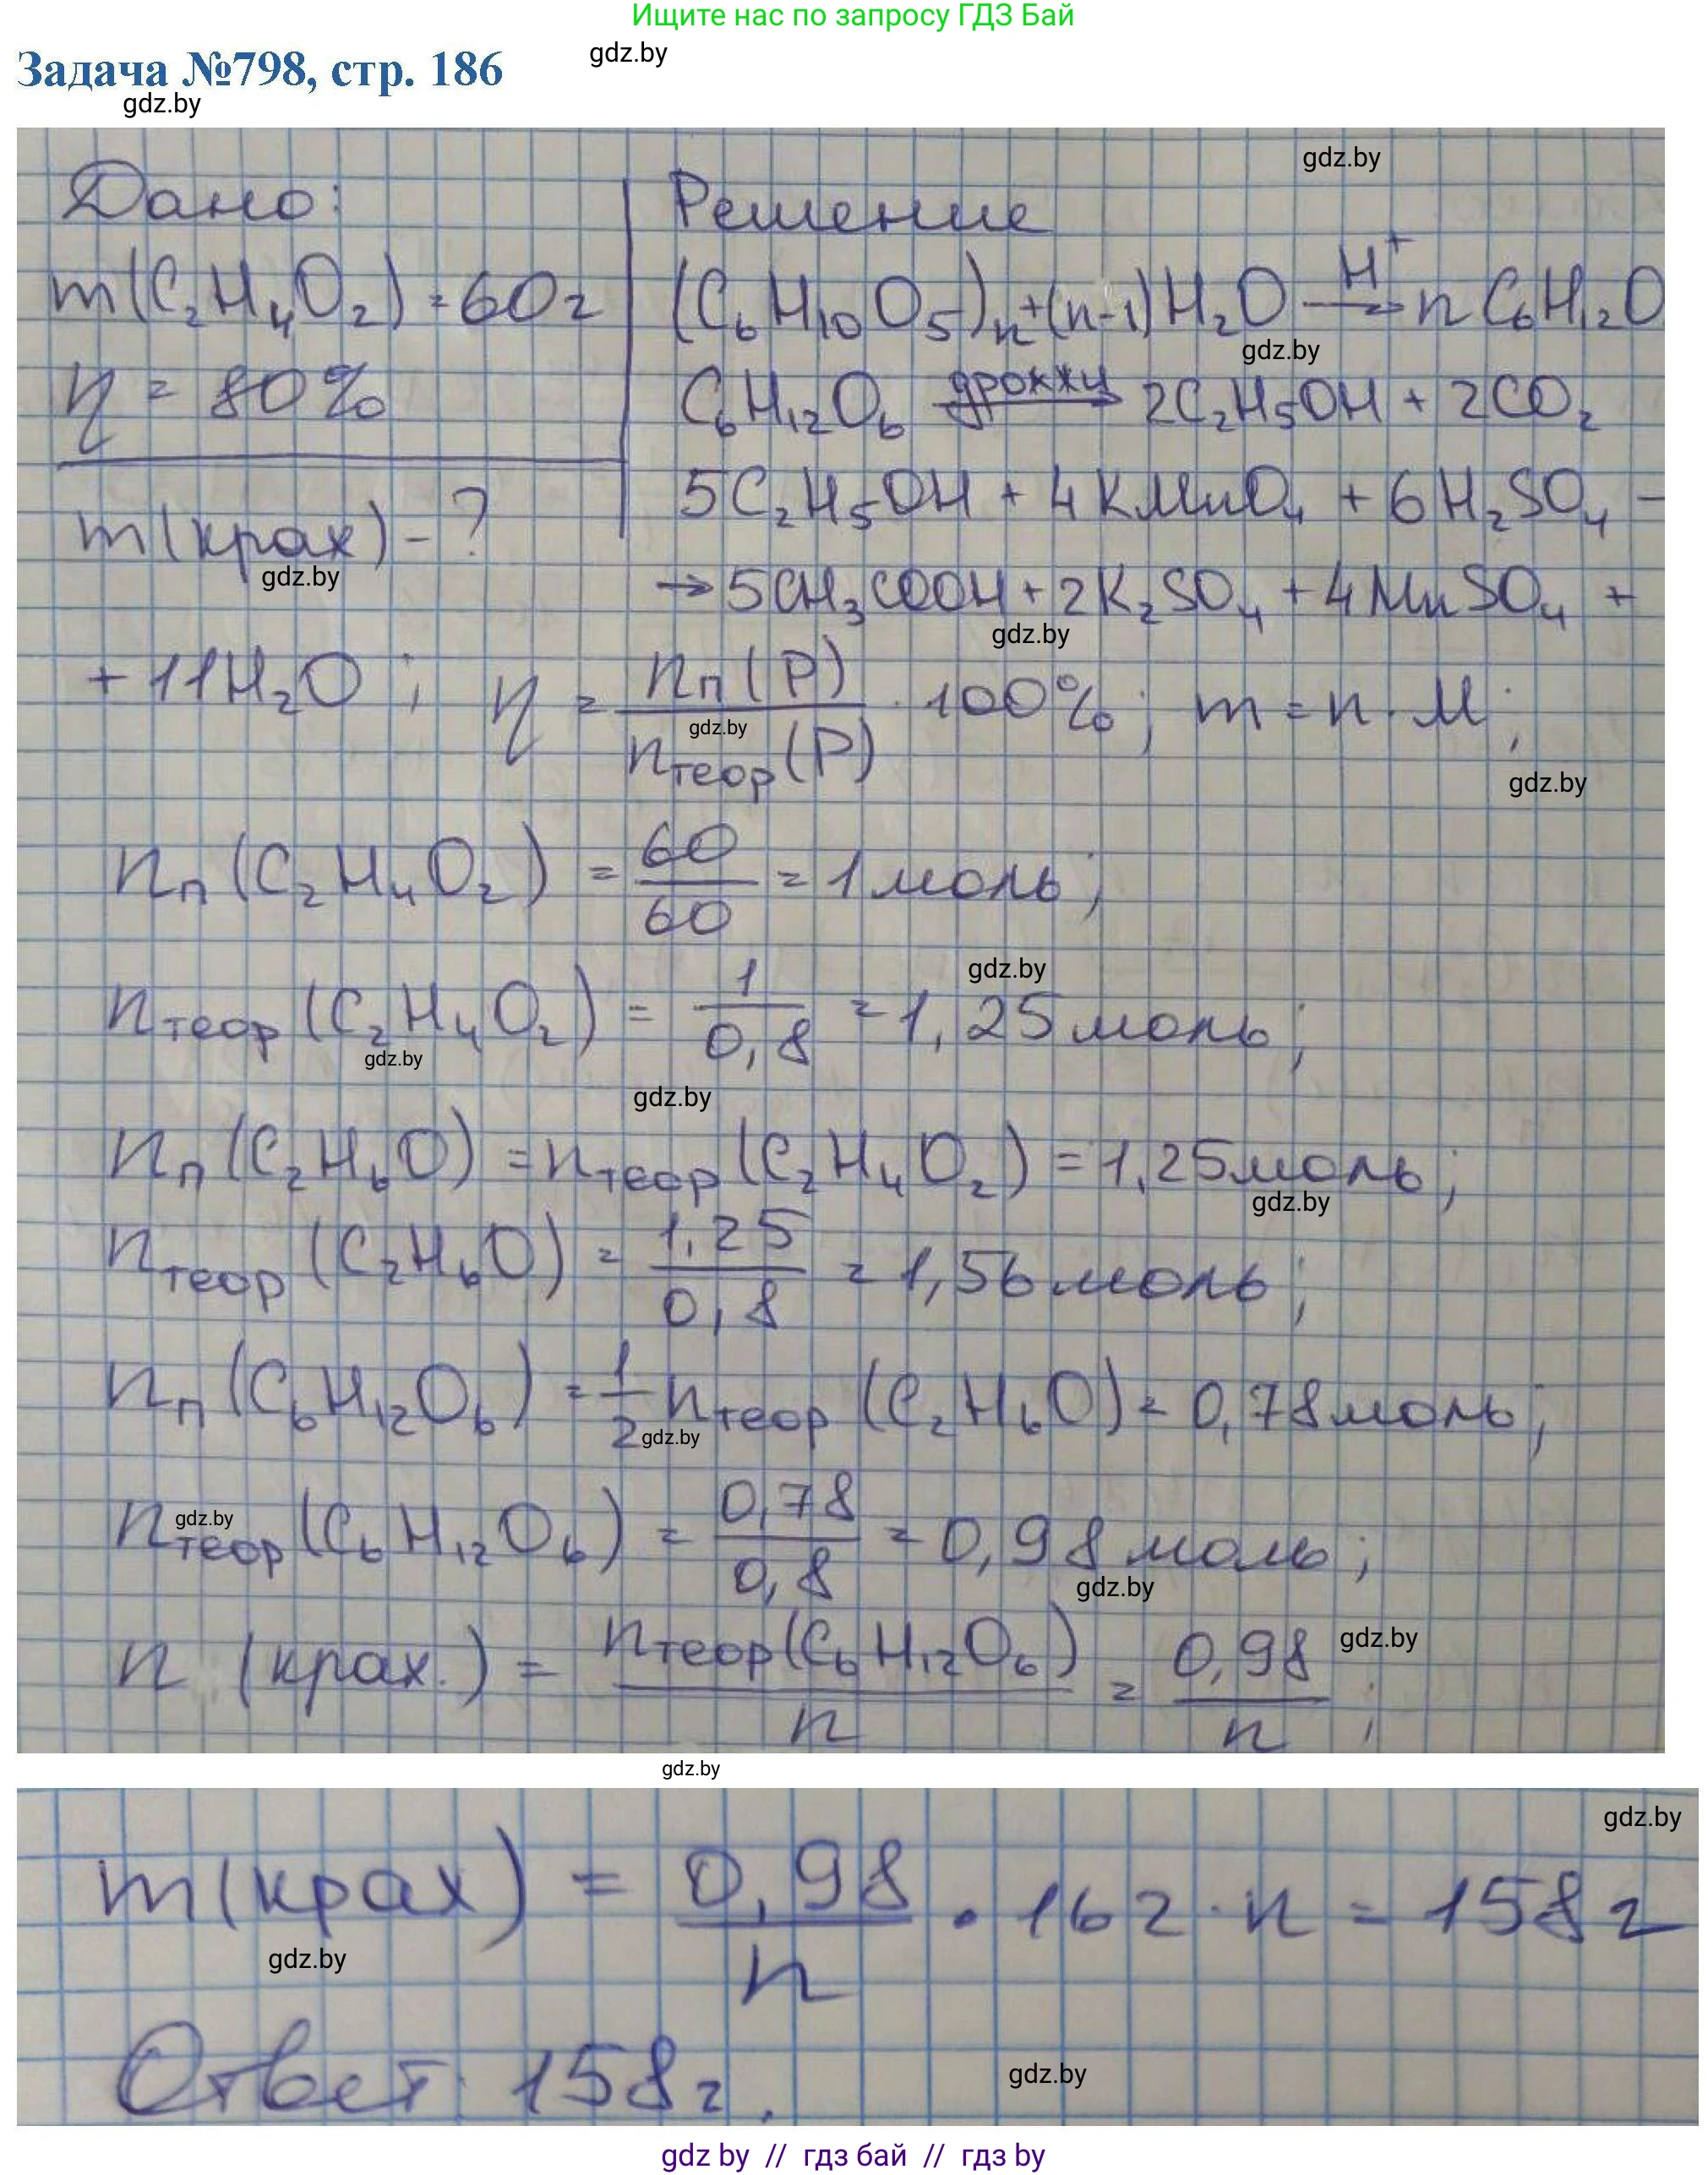 Ищите нас по запросу ГДЗ Бай
Задача №798, стр. 186
gdz.by
gdz.by
gdz.by
Дано: Решение
m(C₂H₄O₂) = 60г (C₆H₁₀O₅)ₙ+(n-1)H₂O —H⁺→ nC₆H₁₂O
gdz.by
η = 80% C₆H₁₂O₆ —дрожжи→ 2C₂H₅OH + 2CO₂
m(крах) - ? 5C₂H₅OH + 4KMnO₄ + 6H₂SO₄ –
gdz.by
→ 5CH₃COOH + 2K₂SO₄ + 4MnSO₄ +
gdz.by
+ 11H₂O ; η = nп(P)/nтеор(P) · 100% ; m = n · M ;
gdz.by
gdz.by
nп(C₂H₄O₂) = 60/60 = 1 моль ;
gdz.by
nтеор(C₂H₄O₂) = 1/0,8 = 1,25 моль ;
gdz.by
gdz.by
nп(C₂H₆O) = nтеор(C₂H₄O₂) = 1,25 моль ;
gdz.by
nтеор(C₂H₆O) = 1,25/0,8 = 1,56 моль ;
nп(C₆H₁₂O₆) = 1/2 nтеор(C₂H₆O) = 0,78 моль ;
gdz.by
gdz.by
nтеор(C₆H₁₂O₆) = 0,78/0,8 = 0,98 моль ;
gdz.by
n (крах.) = nтеор(C₆H₁₂O₆)/n = 0,98/n ;
gdz.by
gdz.by
gdz.by
m(крах) = 0,98/n · 162 · n = 158 г
gdz.by
Ответ: 158 г.
gdz.by
gdz by // гдз бай // гдз by